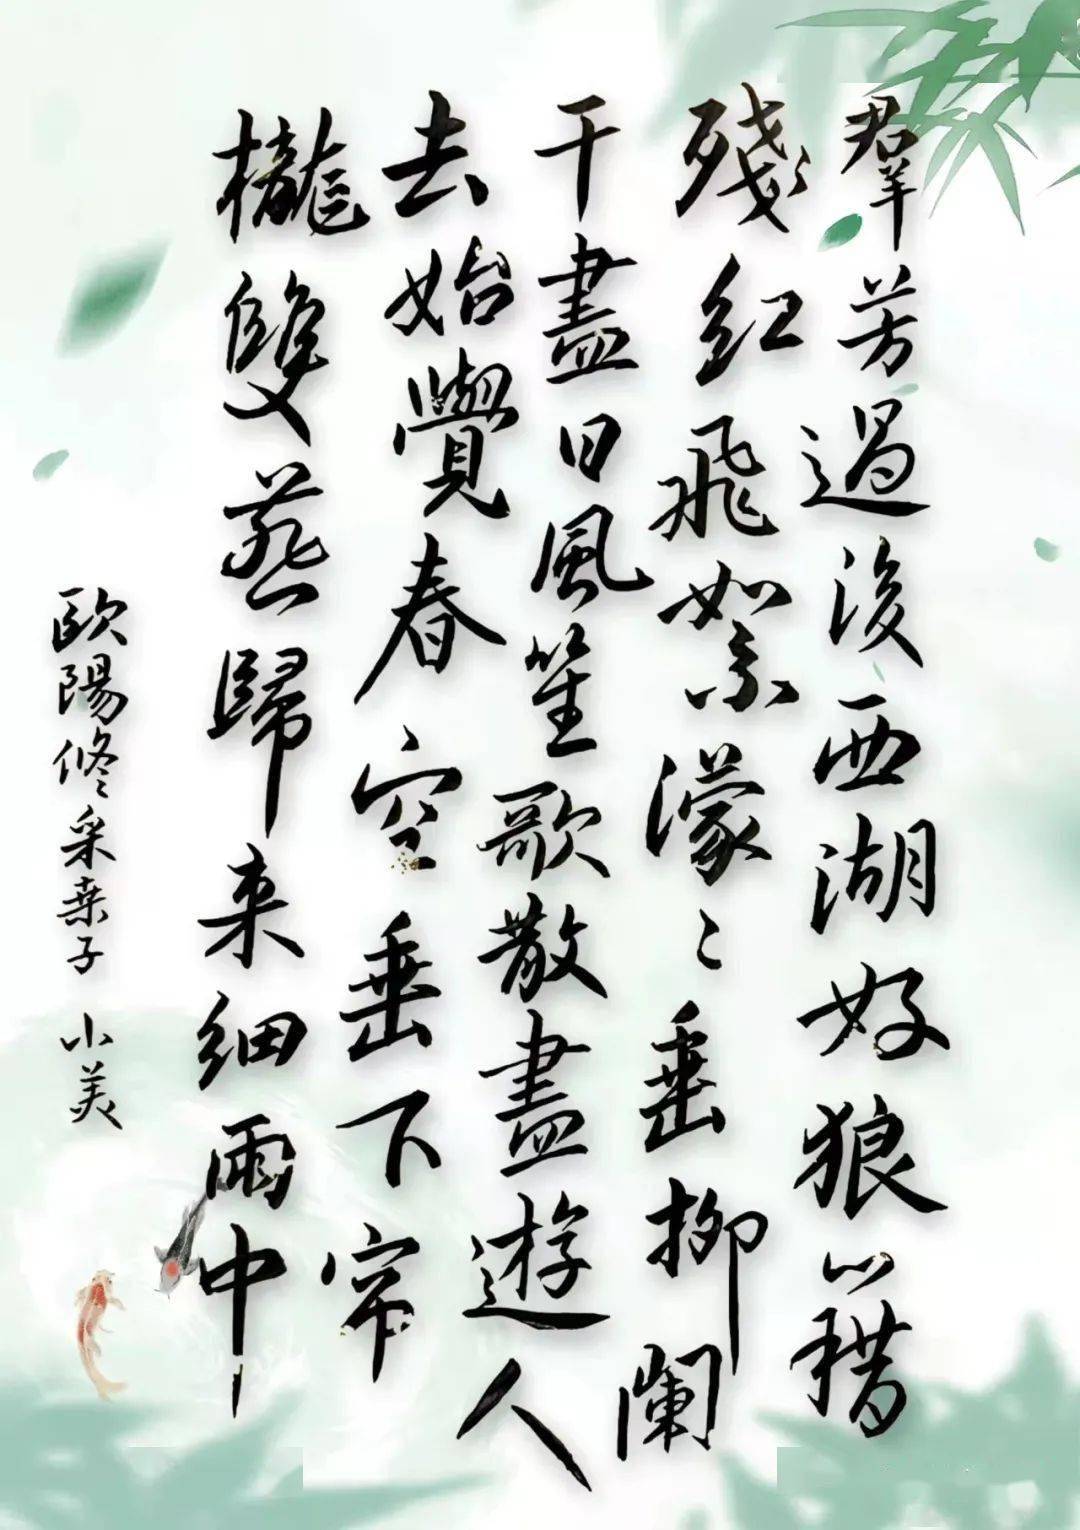 羣芳過後西湖好狼籍
殘紅飛絮濛〻垂柳闌
干盡日風笙歌散盡遊人
去始覺春空垂下帘
櫳雙燕歸来細雨中
歐陽修采桑子 小美